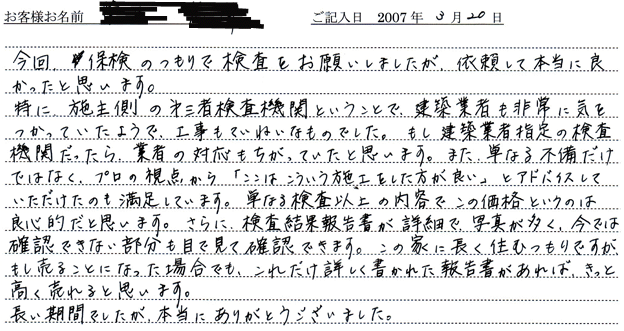 お客様お名前 ご記入日 2007年 3月 20日
今回、保検のつもりで検査をお願いしましたが、依頼して本当に良
かったと思います。
特に 施主側の才三者検査機関ということで、建築業者も非常に気を
つかっていたようで、工事もていねいなものでした。もし建築業者指定の検査
機関だったら、業者の対応もちがっていたと思います。また、単なる不備だけ
ではなく、プロの視点から「ここはこういう施工をした方が良い」とアドバイスして
いただけたのも満足しています。単なる検査以上の内容でこの価格というのは
良心的だと思います。さらに、検査結果報告書が詳細で、写真が多く、今では
確認できない部分も目で見て確認できます。この家に長く住むつもりですが、
もし売ることになった場合でも、これだけ詳しく書かれた報告書があれば、きっと
高く売れると思います。
長い期間でしたが、本当にありがとうございました。